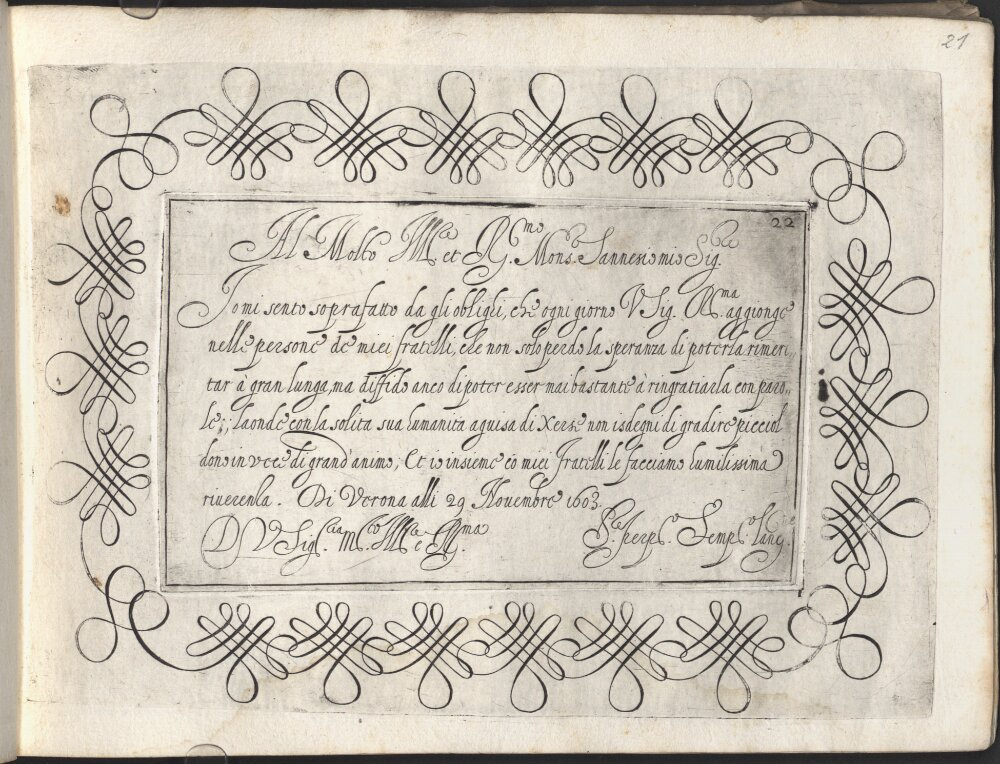 21
22
Al Molto M.ce et R.mo Mons.r Sannesio mio Sig.re
Io mi sento soprafatto da gli oblighi, che ogni giorno V Sig. R.ma aggionge
nelle persone de miei fratelli, che non solo perdo la speranza di poterla rimeri,
tar à gran lunga, ma diffido anco di poter esser mai bastante à ringratiarla con paro,,
le; laonde con la solita sua humanita aguisa di Xerse non isdegni di gradire picciol
dono in vece di grand'animo, Et io insieme cō miei Fratelli le facciamo humilissima
riverenza. Di Verona alli 29 Novembre 1603.
D V Sig.ria M.to M.ce e R.ma
S.re perp.o Semp.